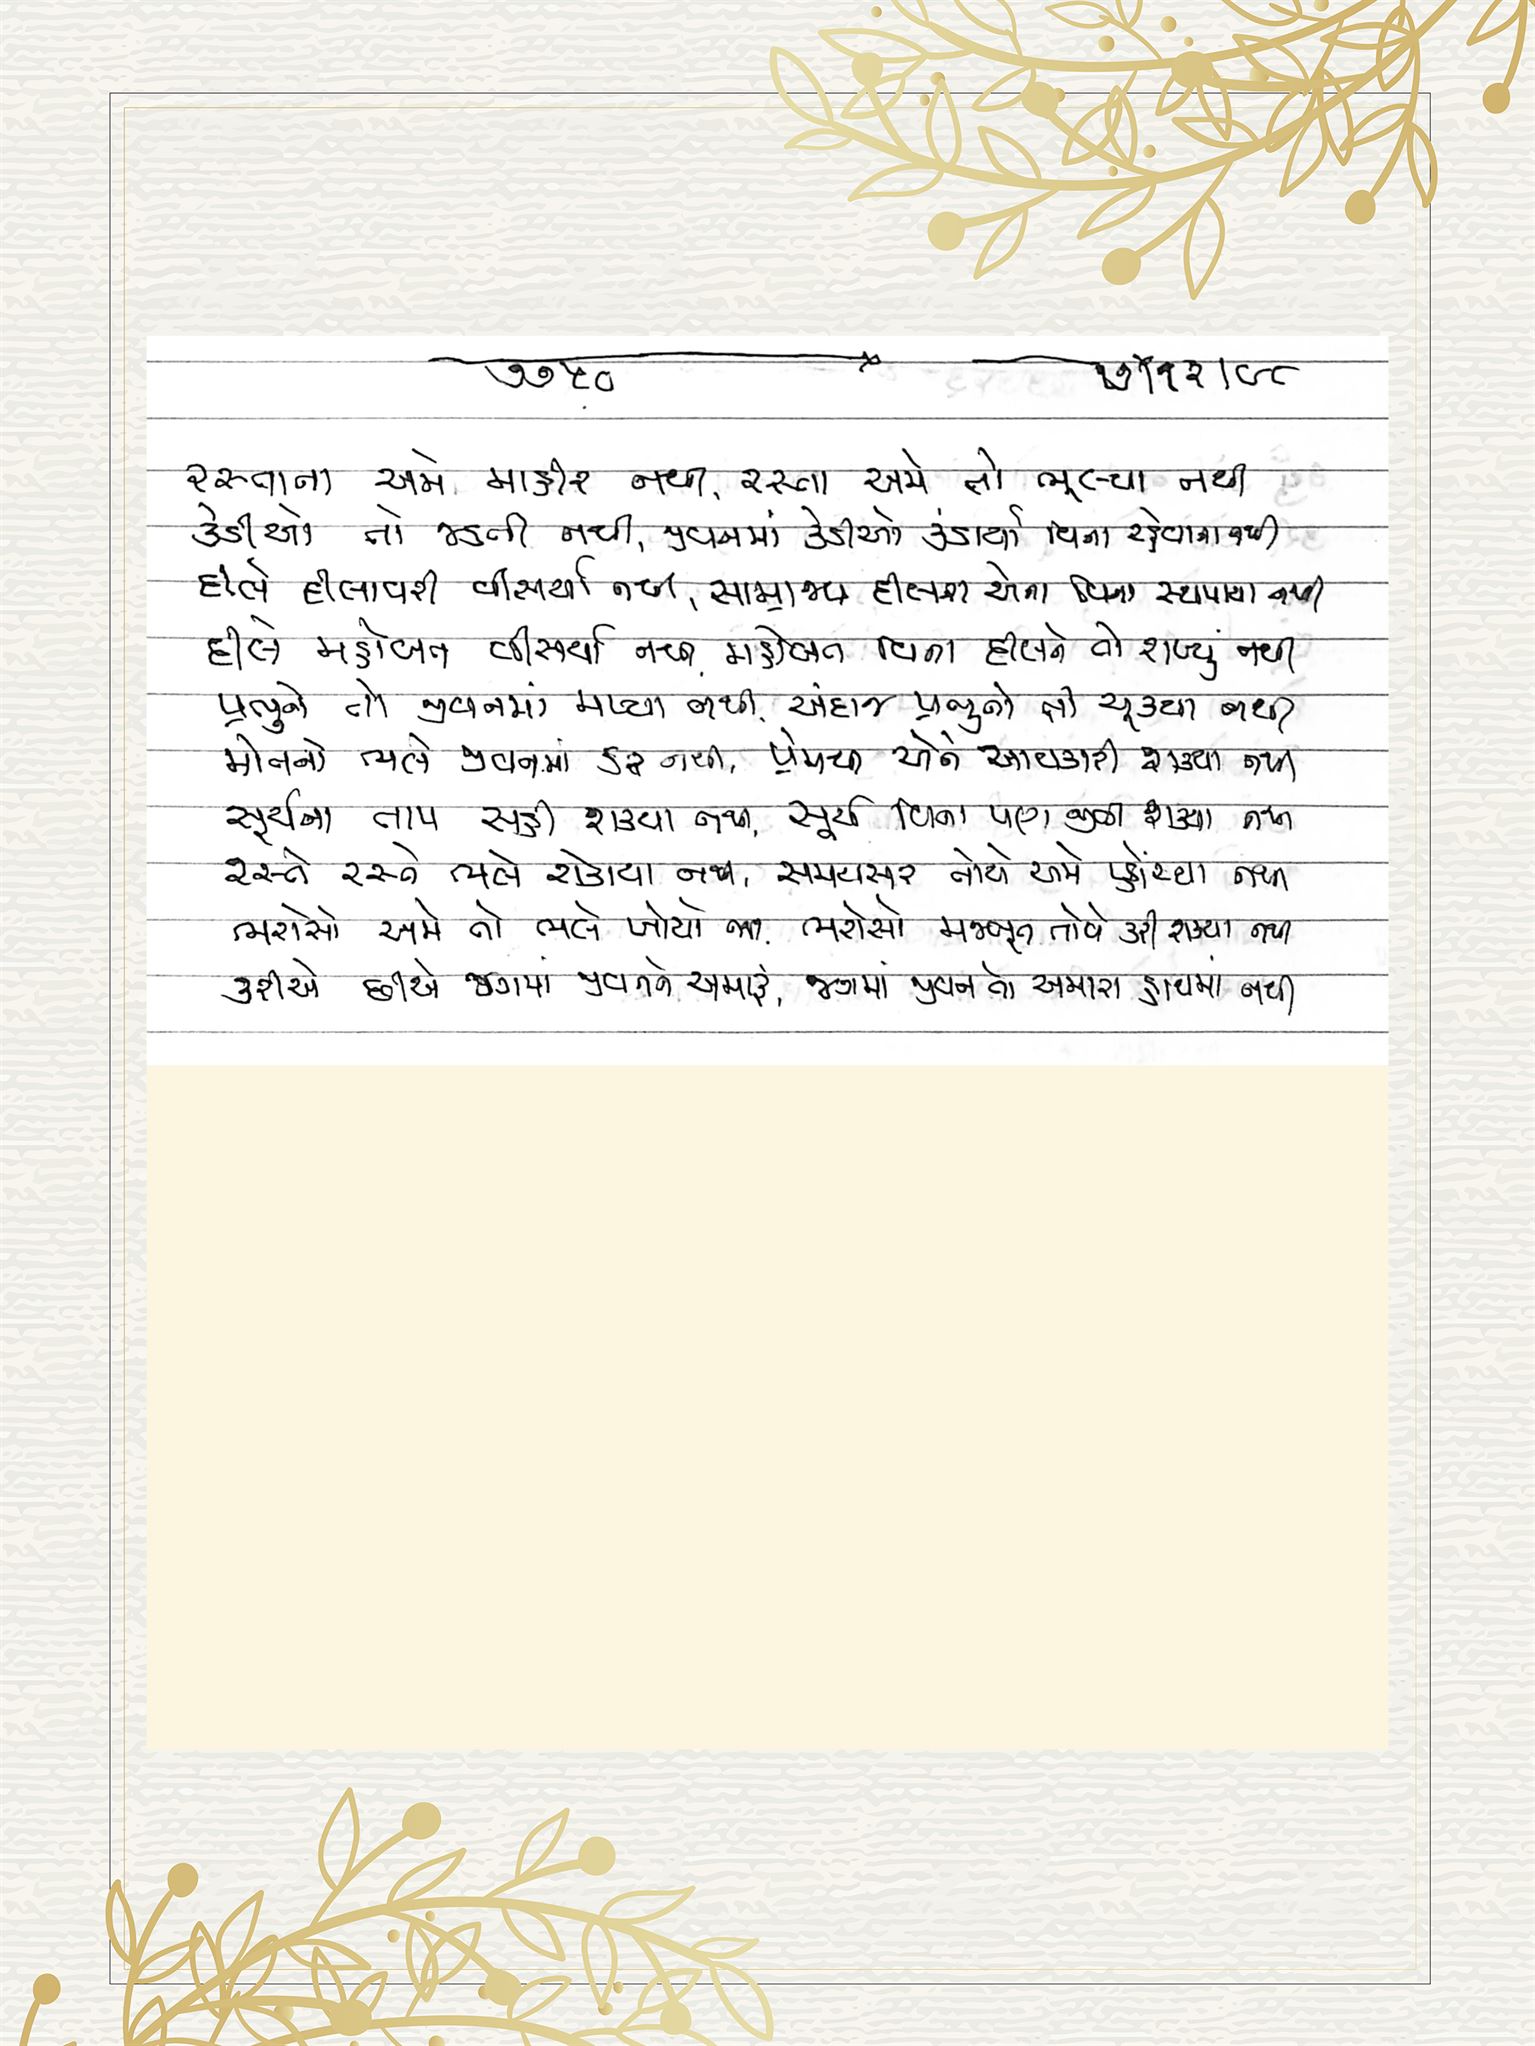 ૭૭૫૦ ૭/૧૨/૯૮
રસ્તાના અમે માહીર નથી, રસ્તા અમે તો ભૂલ્યા નથી
કેડીઓ તો જડતી નથી, જીવનમાં કેડીઓ કંડાર્યા વિના રહેવાના નથી
દીલે દીલાવરી વીસાર્યા નથી, સામ્રાજ્ય દીલના એના વિના સ્થપાયા નથી
દીલે મહોબત વીસાર્યા નથી, મહોબત વિના દીલને તો રાખ્યું નથી
પ્રભુને તો જીવનમાં મળ્યા નથી, અંદાજ પ્રભુનો તો ચૂક્યા નથી
મોતનો ભલે જીવનમાં ડર નથી, પ્રેમથી એને આવકારી શક્યા નથી
સૂર્યના તાપ સહી શક્યા નથી, સૂર્ય વિના પણ જીવી શક્યા નથી
રસ્તે રસ્તે ભલે રોકાયા નથી, સમયસર તોયે અમે પહોંચ્યા નથી
ભરોસો અમે તો ભલે ખોયો નથી, ભરોસો મજબૂત તોયે કરી શક્યા નથી
કરીએ છીએ જગમાં જીવનને અમારું, જગમાં જીવન તો અમારા હાથમાં નથી